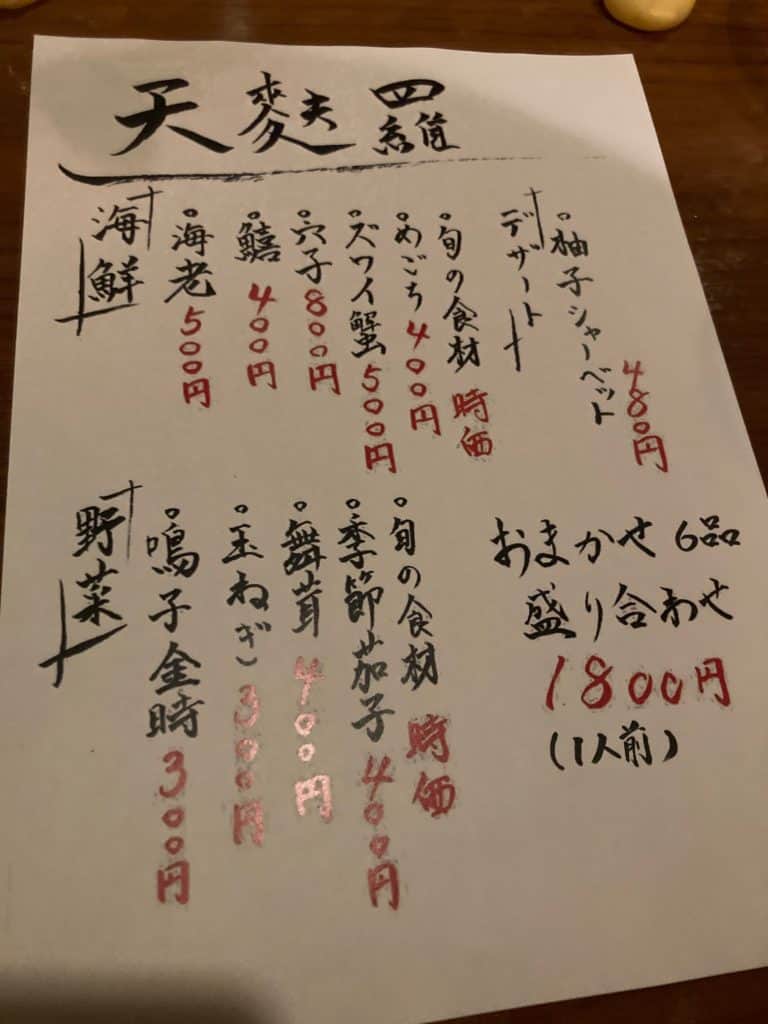 天麩羅
海鮮
。海老 500円
。鱚 400円
。穴子 800円
。ズワイ蟹 500円
。めごち 400円
。旬の食材 時価
デザート
。柚子シャーベット 480円
野菜
。鳴子金時 300円
。玉ねぎ 300円
。舞茸 400円
。季節茄子 400円
。旬の食材 時価
おまかせ 6品
盛り合わせ
1800円
(1人前)